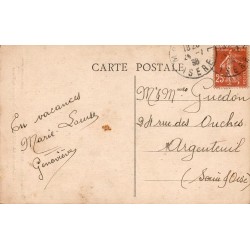 CARTE POSTALE
En vacances
Marie-Louise
Geneviève
M & Mme Guédon
rue des Ouches
Argenteuil
(Seine & Oise)
ISERE
25